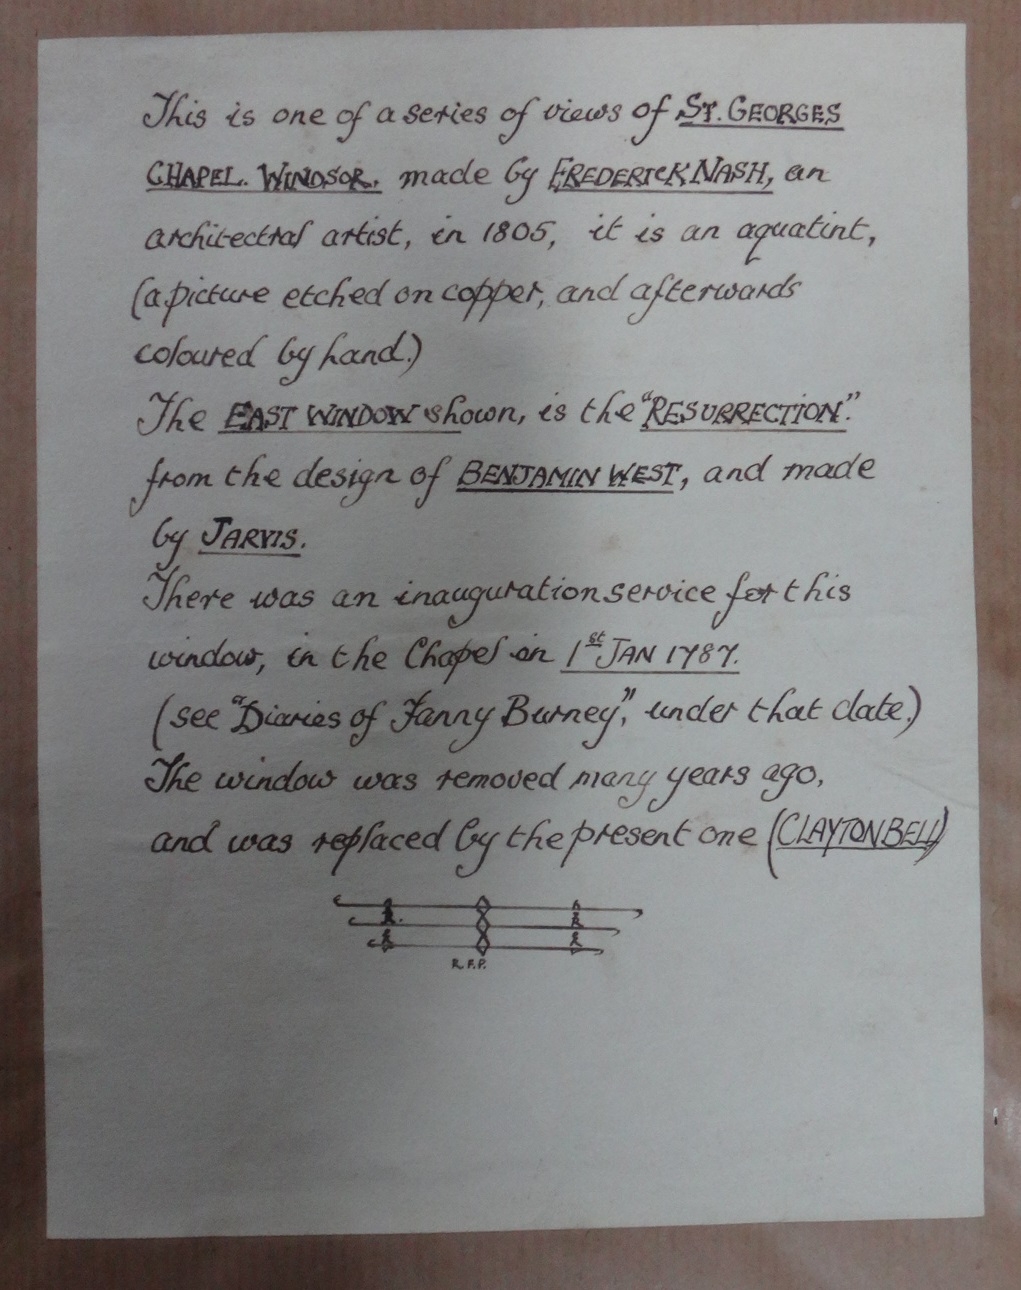 This is one of a series of views of ST. GEORGES
CHAPEL. WINDSOR. made by FREDERICK NASH, an
architectral artist, in 1805, it is an aquatint,
(a picture etched on copper, and afterwards
coloured by hand.)
The EAST WINDOW shown, is the "RESURRECTION".
from the design of BENJAMIN WEST, and made
by JARVIS.
There was an inauguration service for this
window, in the Chapel on 1st JAN 1787.
(see "Diaries of Fanny Burney", under that date.)
The window was removed many years ago,
and was replaced by the present one (CLAYTON BELL)
R.F.P.